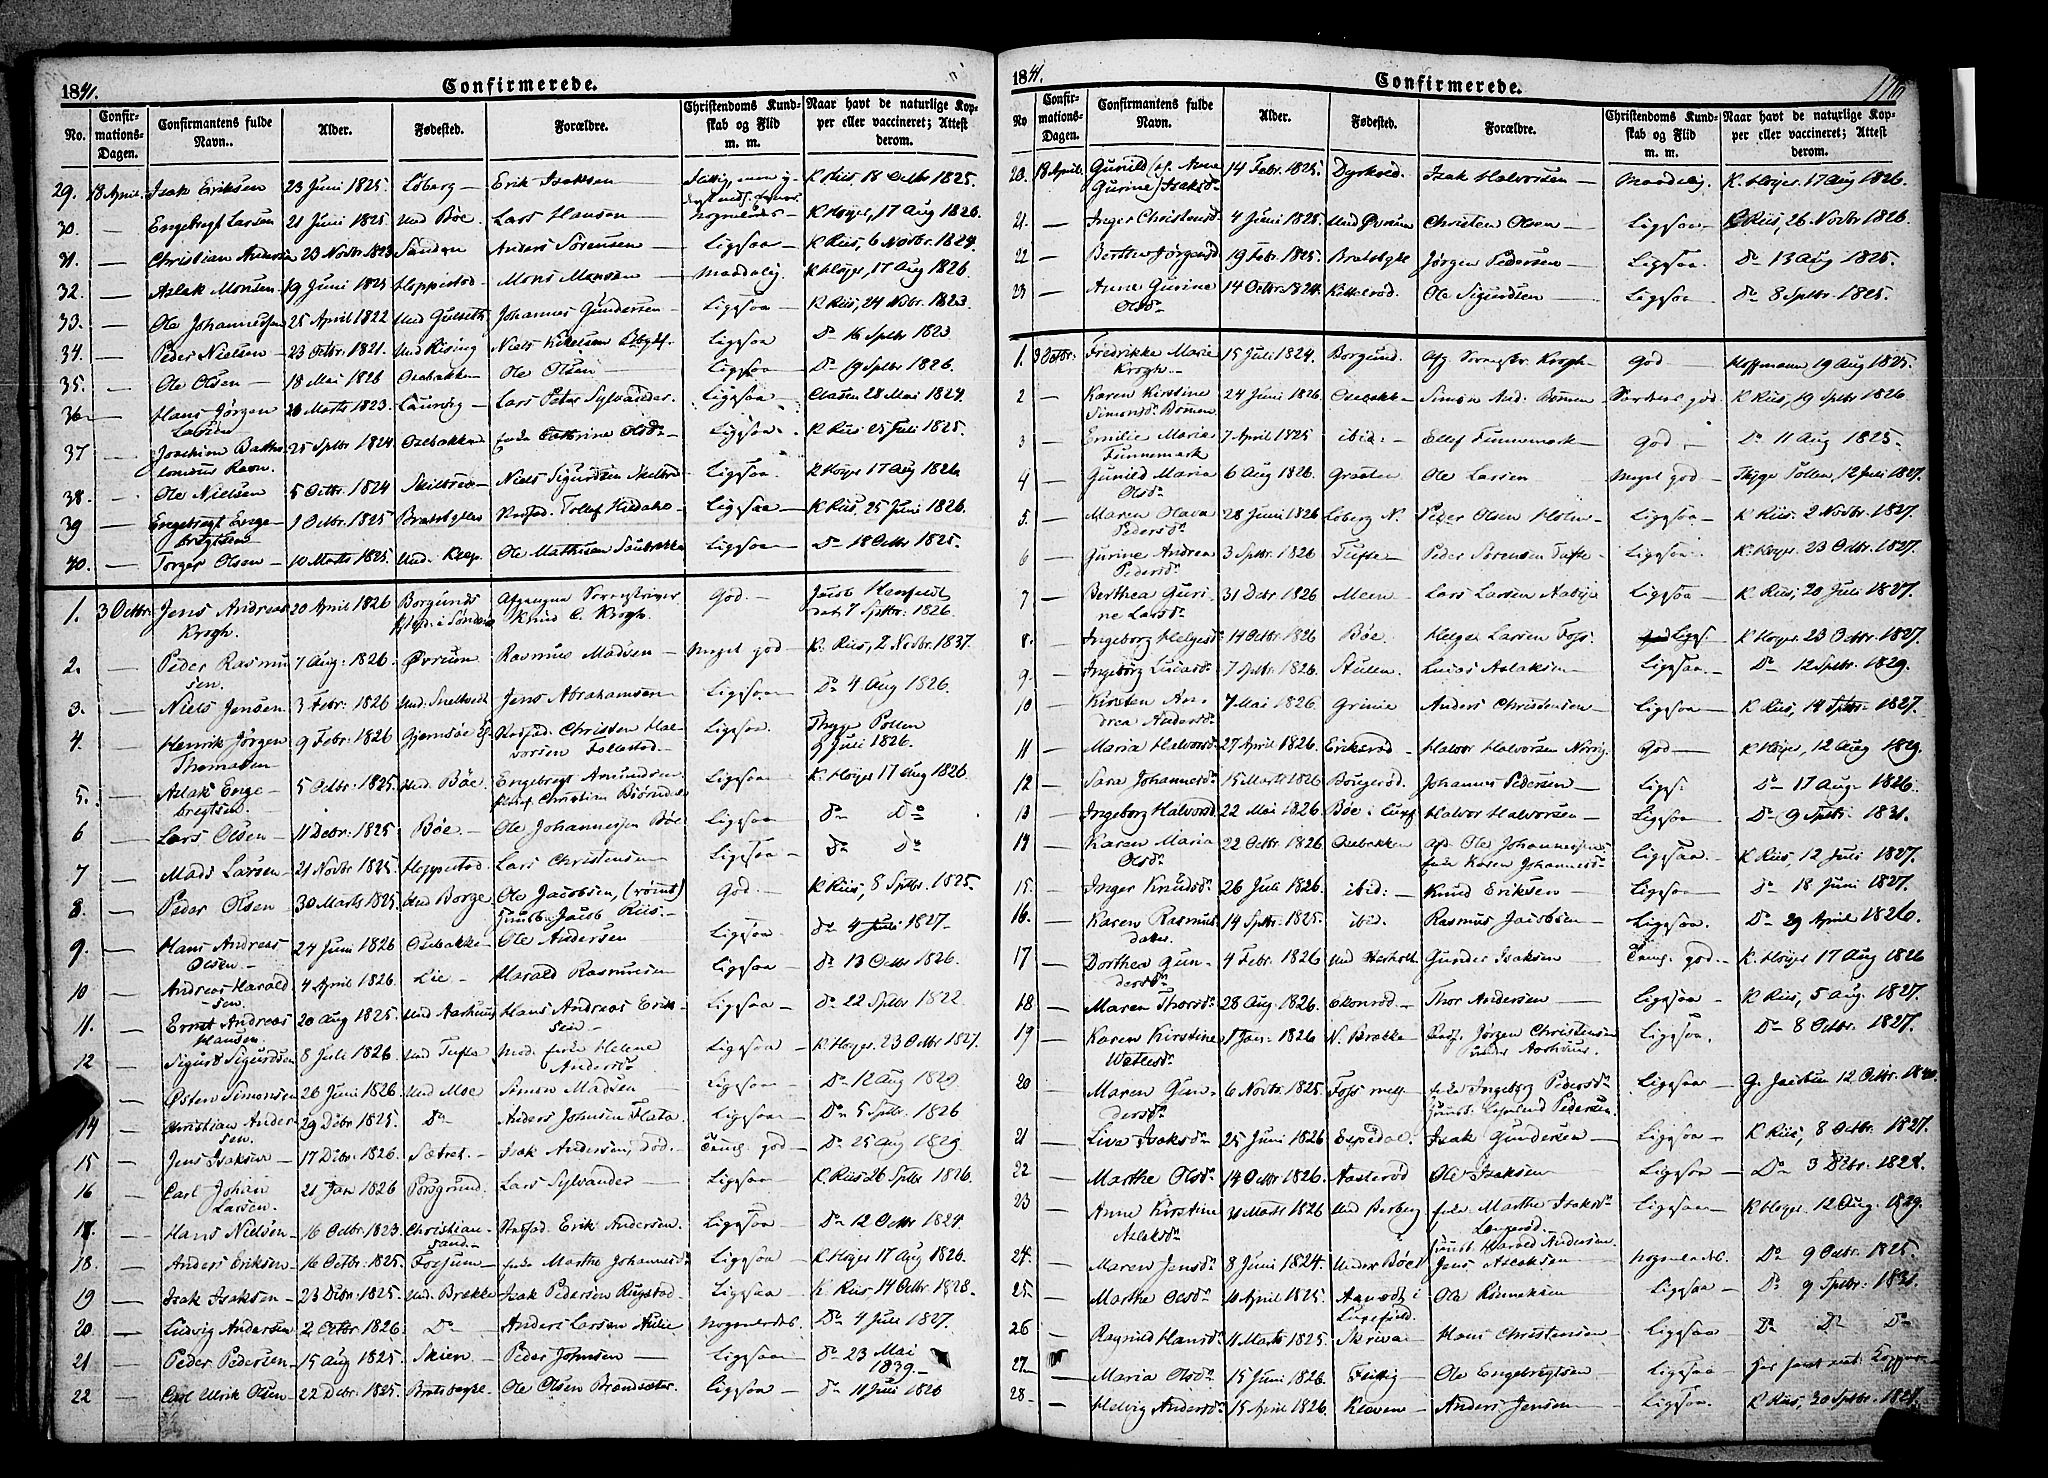 1841.
Confirmerede.
No.
Confirmations-Dagen.
Confirmantens fulde Navn.
Alder.
Fødested.
Forældre.
Christendoms Kundskab og Flid m. m.
Naar havt de naturlige Kopper eller vaccineret; Attest derom.
29. 18 April. Isak Eriksen 23 Juni 1825. Løberg Erik Isaksen K Riis 18 Octbr 1825.
30. — Engebregt Larsen 21 Juni 1825 Und Bøe. Lars Hansen nogenledes K Høyer, 17 Aug 1826.
31. — Christian Andersen 23 Novbr 1823 Sanden Anders Sörensen Ligesaa K Riis, 6 Novbr. 1824.
32. — Aslak Monsen 19 Juni 1825 Heppestad Mons Monsen Maadelig K Høyer, 17 Aug 1826.
33. — Ole Johannessen 25 April 1822 Und Gulseth Johannes Gundersen Ligesaa K Riis, 24 Novbr. 1823.
34. — Peder Nielsen 23 Octbr. 1821. Und Kising Niels Ligesaa Do 16 Septbr 1823
35. — Ole Olsen 18 Mai 1826 Osebakken Ole Olsen Ligesaa Do 19 Septbr 1826.
36 — Hans Jörgen Larsen 20 Marts 1823. Laurvig Lars Peter Sylvander Ligesaa Clausen 28 Mai 1824.
37 — Joachim Bartholomæus Ravn. 25 Septbr 1824 Osebakken Enke Cathrine Olsdr Ligesaa K Riis 25 Juli 1825.
38. — Ole Nielsen 5 Octbr. 1824 Skilbred Niels Sigurdsen Skilbred Ligesaa. K Høyer 17 Aug 1826
39 — Engebregt Engebregtsen 1 Octbr. 1825 Bratsbergkleven Tollef Ligesaa K Riis, 25 Juni 1826.
40. — Torger Olsen 10 Marts 1825. Und. Klep. Ole Mathisen Ligesaa Do 18 Octbr 1825.
1. 3 Octbr. Jens Andreas Krogh. 20 April 1826 Borgunds i Afgangne Knud C. Krogh. God. Jacob 7 Septbr. 1826.
2. — Peder Rasmussen. 7 Aug. 1826. Øvrum Rasmus Madsen Meget god K. Riis, 2 Novbr. 1837.
3. — Niels Jensen. 3 Febr. 1826 Und. Jens Abrahamsen Ligesaa Do 4 Aug 1826.
4. — Henrik Jörgen Thomassen 9 Febr. 1826 Gjemsöe Christen Halvorsen Ligesaa. Thyge Pollen 9 Juli 1826.
5. — Aslak Engebregtsen. 5 Octbr. 1825. Und. Bøe. Engebregt Amundsen Ligesaa K. Høyer 17 Aug 1826
6 — Lars Olsen 11 Decbr: 1825 Bøe Ole Johannessen Bøe Ligesaa Do Do
7 — Mads Larsen 21 Novbr 1825. Heppestad Lars Christensen Ligesaa Do Do
8. — Peder Olsen 30 Marts 1825. Und Borge Ole Jacobsen, (rømt) Jacob Riis. God. K Riis, 8 Septbr. 1825.
9. — Hans Andreas Olsen 24 Juni 1826 Osebakken Ole Andersen Ligesaa. Do 4 Juli 1827
10 — Andreas Haraldsen. 4 April 1826. Lie Harald Rasmussen Ligesaa Do 13 Octbr 1826.
11. — Ernst Andreas Hansen. 20 Aug 1825. Und Aarhuus Hans Andreas Eriksen Ligesaa Do 22 Septbr 1822.
12 — Sigurd Sigurdsen 8 Juli 1826. Und Tufte Enke Helene Andersdr Ligesaa K Høyer 23 Octbr 1827.
— Østen Simonsen 26 Juni 1826. Und Moe Simon Madsen Ligesaa Do 12 Aug 1829
14 — Christian Andersen. 29 Decbr 1825. Do Anders Johnsen Flata. Ligesaa Do 5 Septbr. 1826
15 — Jens Isaksen 17 Decbr 1826. Sætret. Isak Andersen, død. Temg. god Do 25 Aug 1829.
16 — Carl Johan Larsen. 21 Jan 1826 Porsgrund. Lars Sylvander Ligesaa K Riis 26 Septbr 1826.
17. — Hans Nielsen 16 Octbr: 1823 Christiansand. Erik Andersen. Ligesaa Do 12 Octbr 1824.
18 — Anders Eriksen 16 Octbr: 1825. Fossum Enke Marthe Johannesdr Ligesaa K Høyer 17 Aug 1826.
19 — Isak Isaksen 23 Decbr: 1825. Und. Brække Isak Pedersen Rugstad. Ligesaa K. Riis 14 Octbr 1828.
20 — Ludvig Andersen 2 Octbr 1826. Do Anders Larsen nogenledes. Do 4 Juli 1827.
21 — Peder Pedersen 15 Aug 1825. Skien Peder Johnsen Ligesaa Do 23 Mai 1839.
22 Carl Ulrik Olsen 22 Decbr. 1825. Bratsbergkl. Ole Olsen Brandsæter. Ligesaa Do 11 Juni 1826
1841.
Confirmerede.
No
Confirmations-Dagen.
Confirmantens fulde Navn.
Alder.
Fødested.
Forældre.
Christendoms Kundskab og Flid m. m.
Naar havt de naturlige Kopper eller vaccineret; Attest derom.
20. 18 April. Gunild (el. Anne Gurine) Isaksdr 14 Febr. 1825. Dyrkved. Isak Halvorsen Maadelig K. Høyer 17 Aug 1826.
21. — Inger Christensdr 4 Juni 1825. Und Øvrum Christen Olsen Ligesaa K Riis, 26 Novbr 1826.
22 — Berthe Jörgensdr 19 Febr. 1825. Bratsbgkl. Jörgen Pedersen Ligesaa. Do 13 Aug 1825.
23 — Anne Gurine Olsdr 14 Octbr. 1824. Kittelröd. Ole Sigurdsen Ligesaa Do 8 Septbr. 1825.
1. 3 Octbr. Fredrikke Marie Krogh. 15 Juli 1824. Borgund. Afg. Krogh God Hoffmann 19 Aug 1825.
2 — Karen Kirstine Simonsdr Bomen 24 Juni 1826. Osebakken Simon And. Bomen Særdeles god. K Riis, 19 Septbr 1826.
3 — Emilie Maria Funnemark 7 April 1825 ibid: Ellef Funnemark God. Do 11 Aug 1825.
4 — Gunild Maria Olsdr 6 Aug 1826. Graaten Ole Larsen Meget god Thyge Pollen, 12 Juli 1827.
5. — Maren Olava Pedersdr 28 Juni 1826 Løberg N. Peder Olsen Holm Ligesaa K Riis. 2 Novbr. 1827.
6 — Gurine Andrea Pedersdr. 3 Septbr. 1826 Tufte Peder Sörensen Tufte Ligesaa. K. Høyer. 23 Octbr. 1827.
7 — Berthea Gurine Larsdr 31 Decbr 1826 Meen Lars Larsen Ligesaa K. Riis, 20 Juli 1827.
8. — Ingeborg Helgesdr 14 Octbr. 1826 Bøe Helge Larsen Foss. Ligs. K Høyer 23 Octbr. 1827.
9 — Ingeborg Lucasdr 7 Septbr. 1826. Stulen Lucas Aslaksen Ligesaa. Do 12 Septbr. 1829.
10 — Kirsten Andrea Andersdr 7 Mai 1826 Grinie Anders Christensen Ligesaa K Riis, 14 Septbr 1827.
11 — Maria Halvorsdr. 27 April 1826. Eriksröd Halvor Halvorsen God K Høyer, 12 Aug 1829.
12 — Sara Johannesdr 15 Marts 1826 Bougeröd. Johannes Pedersen Ligs: Do 17 Aug. 1826.
13 — Ingeborg Halvorsdr 22 Mai 1826. Bøe i Halvor Halvorsen Ligesaa Do 9 Septbr: 1831.
14 — Karen Maria Olsdr 22 Octbr. 1826 Osebakken Afd. Ole Johannessens Enke Karen Johannesdr Ligesaa. K Riis, 12 Juli 1827.
15. — Inger Knudsdr 26 Juli 1826. ibid: Knud Eriksen Ligesaa Do 18 Juni 1827.
16. — Karen Rasmusdatter 14 Septbr. 1825. ibid. Rasmus Jacobsen Ligesaa Do 29 April 1826.
17 — Dorthea Gundersdr 4 Febr. 1826 Und Gunder Isaksen Temg. god. K. Høyer 17 Aug 1826
18. — Maren Thorsdr. 28 Aug. 1826. Thor Andersen Ligesaa K Riis, 5 Aug. 1827.
19 — Karen Kirstine 1 Jan. 1826 N. Brække Jörgen Christensen under Aarhuus. Ligesaa. Do 8 Octbr. 1827.
20 — Maren Gundersdr. 6 Novbr. 1825. Foss Enke Ingeborg Pedersdr Pedersen. Ligesaa 12 Octbr.
21 — Liva Isaksdr 25 Juni 1826 Espedal. Isak Gundersen Ligesaa K Riis, 8 Octbr. 1827.
22 — Marthe Olsdr 14 Octbr. 1826. Aasteröd Ole Isaksen Ligesaa Do 3 Decbr. 1828.
23 — Anne Kirstine Aslaksdr Marts 1826 Und Enke Marthe Isaksdr Harald Andersen. Ligesaa K Høyer. 12 Aug. 1829.
24. — Maren Jensdr 8 Juni 1824. Under Bøe Jens Aslaksen nogenledes. Do 9 Octbr. 1825.
25 — Marthe Olsdr April 1825. i Ole Ligesaa Do 9 Septbr: 1831.
26 — Ragnild Hansdr Marts 1825. Hans Christensen Ligesaa Do Do Do
27 — Maria Olsdr. 15 Juni 1826. Ole Engebregtsen Ligesaa har havt nat. Kopper.
28 — Helvig Andersdr 15 April 1826. Kleven Anders Jensen Ligesaa. K Riis, 30 Septbr. 1827.